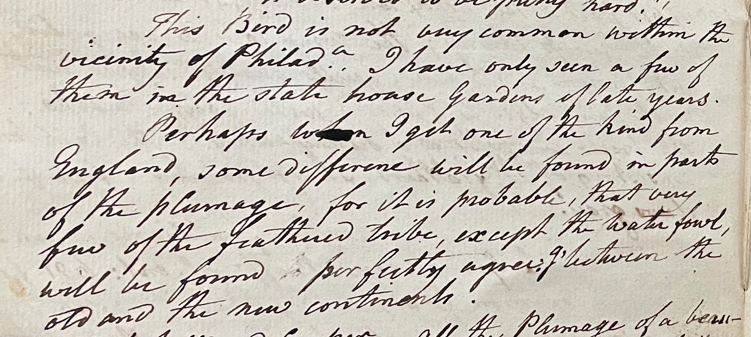 to be pretty hard."
This Bird is not very common within the
vicinity of Philad.a. I have only seen a few of
them in the state house Gardens of late years.
Perhaps when I get one of the kind from
England, some difference will be found in parts
of the plumage, for it is probable, that very
few of the feathered tribe, except the water fowl,
will be found perfectly agree.g between the
old and the new continents.
all the Plumage of a beau-